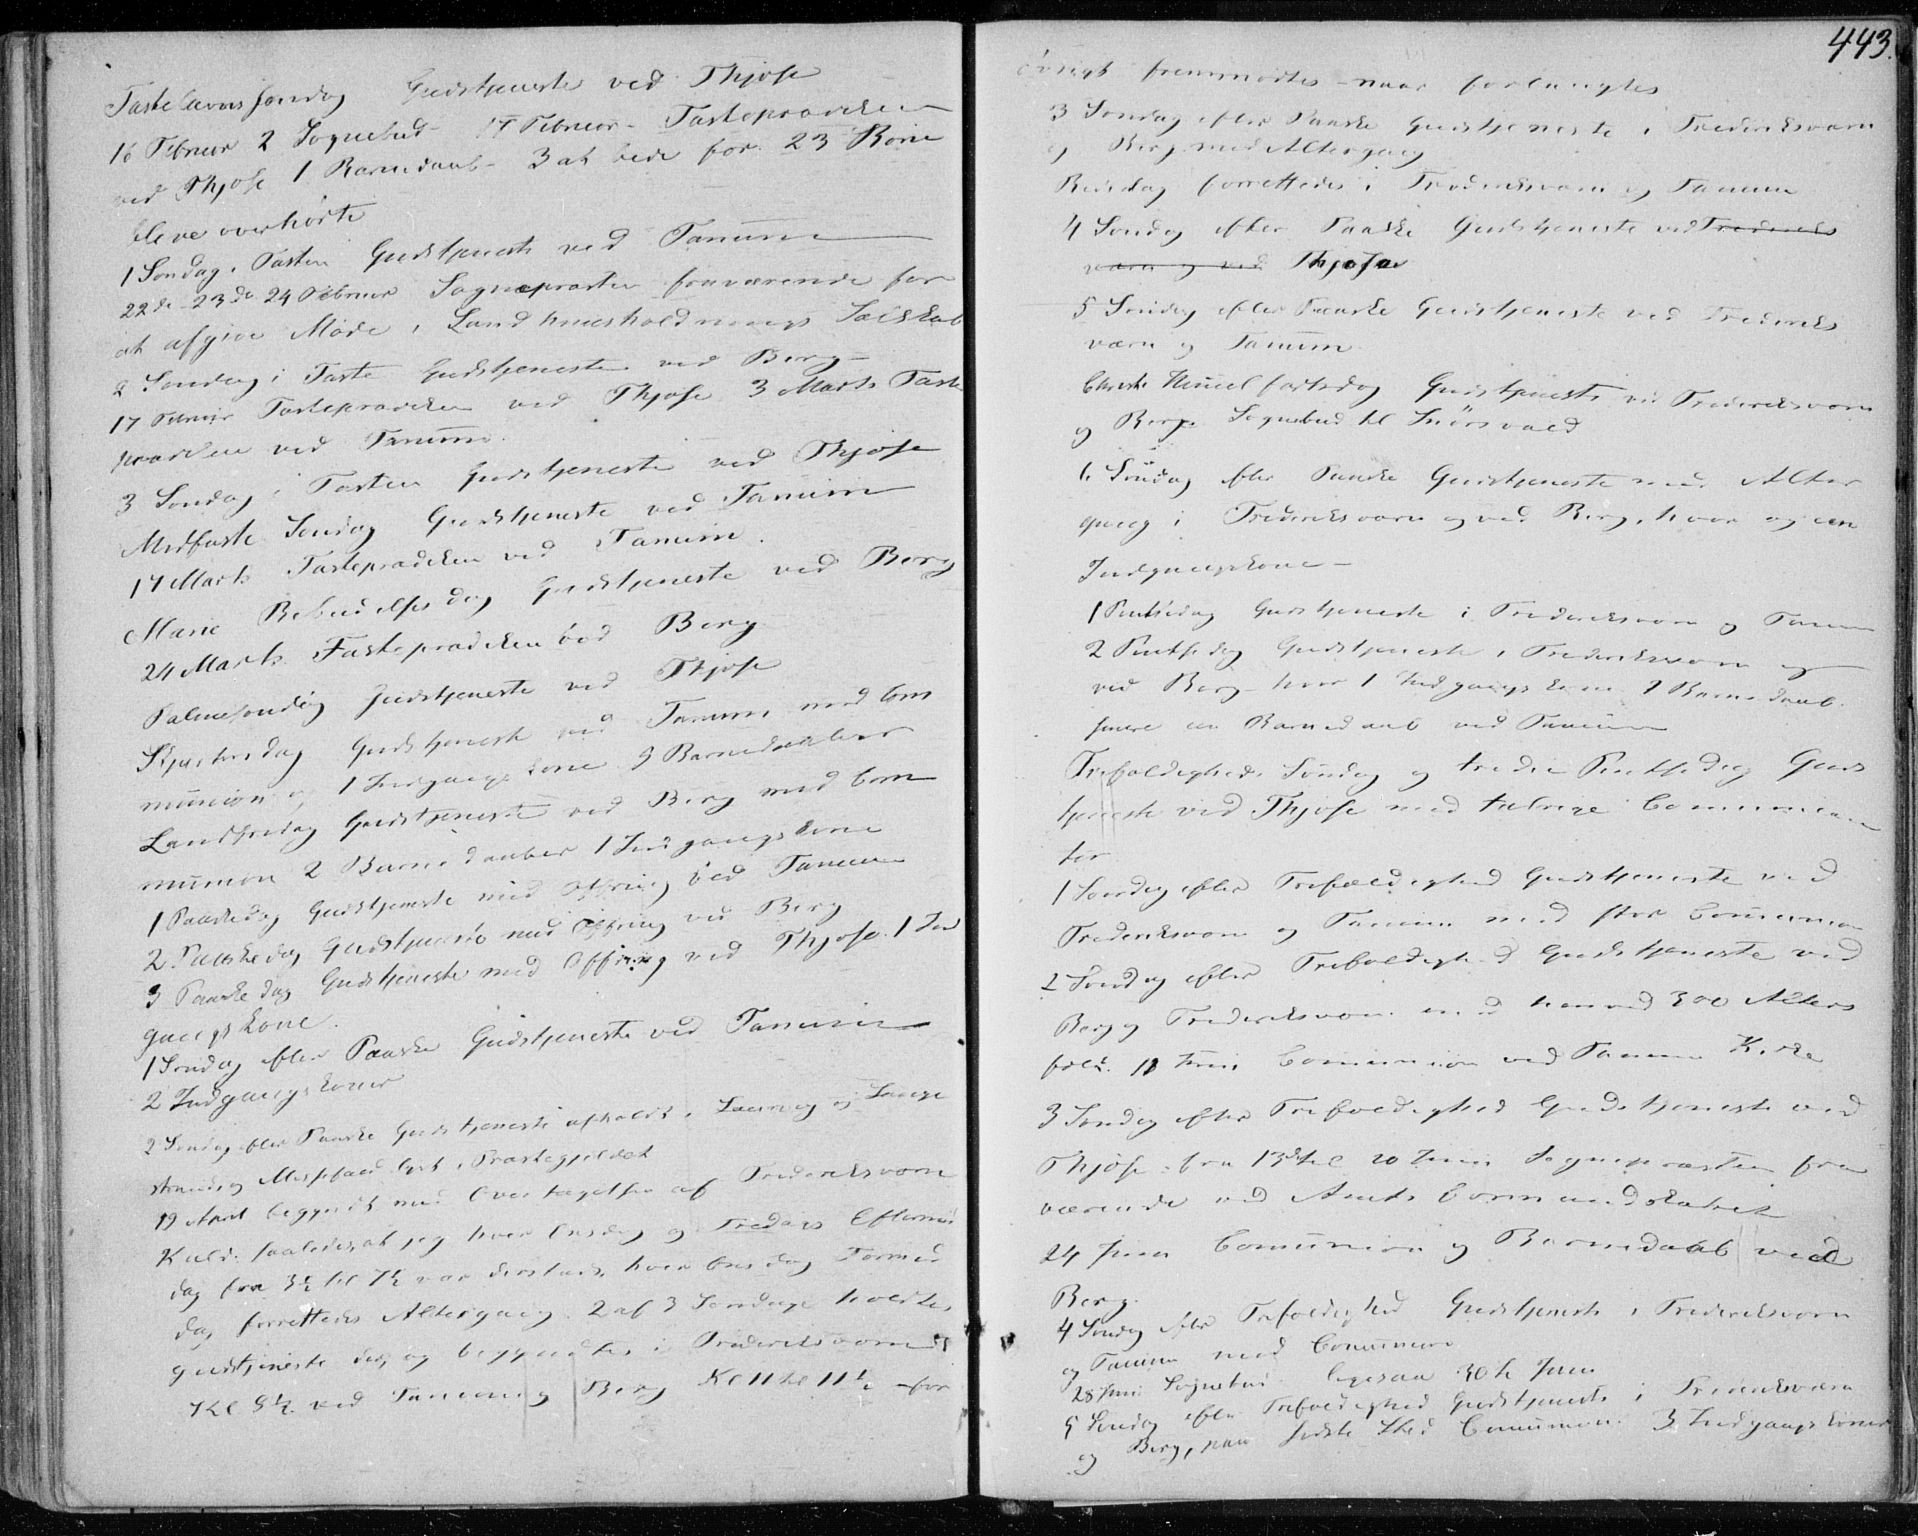 Fastelavns søndag Gudstjeneste ved Thjøse
16 Februar 2 Sognebud 17 Februar Fasteprædiken
ved Thjøse 1 Barnedaab 3 at bede for 23 Børn
bleve overhørte
1 Søndag i Fasten Gudstjeneste ved Tanum
22de 23de 24 Februar Sognepræsten fraværende for
at afgive Møde i Landhuusholdnings Selskab
2 Søndag i Faste Gudstjeneste ved Berg
17 Februar Fasteprædiken ved Thjøse 3 Marts Faste
prædiken ved Tanum.
3 Søndag i Fasten Gudstjeneste ved Thjøse
Midfaste Søndag Gudstjeneste ved Tanum
17 Marts Fasteprædiken ved Tanum.
Mariæ Bebudelsesdag Gudstjeneste ved Berg
24 Marts Fasteprædiken ved Berg
Palmesøndag Gudstjeneste ved Thjøse
Skjærtorsdag Gudstjeneste ved Tanum med Com
munion og 1 Indgangskone 3 Barnedaaber
Langfredag Gudstjeneste ved Berg med Com
munion 2 Barnedaaber 1 Indgangskone
1 Paaskedag Gudstjeneste med Offring ved Tanum
2 Paaskedag Gudstjeneste med Offring ved Berg
3 Paaskedag Gudstjeneste med Offring ved Thjøse. 1 Ind
gangskone.
1 Søndag efter Paaske Gudstjeneste ved Tanum
2 Indgangskoner
2 Søndag efter Paaske Gudstjeneste afholdt i Laurvig og Lange
strand og Messefald lyst i Præstegjeldet
19 April begyndt med Overtagelsen af Frederiksværns
Kald. saaledes, at jeg hver Onsdag og Fredags Eftermid
dag fra 3½ til 7½ var dersteds, hver Onsdag Formid
dag forrettedes Altergang. 2 af 3 Søndage holdtes
Gudstjeneste der, og begyndtes i Frederiksværn
Kl 8½ ved Tanum og Berg Kl 11 til 11½ for
443.
øvrigt fremmødtes naar forlangtes
3 Søndag efter Paaske Gudstjeneste i Frederiksværn
og Berg med Altergang
Bededag forrettedes i Frederiksværn og Tanum
4 Søndag efter Paaske Gudstjeneste ved Frederiks
værn og ved Thjøse
5 Søndag efter Paaske Gudstjeneste ved Frederiks
værn og Tanum
Christi Himmelfartsdag Gudstjeneste ved Frederiksværn
og Berg. Sognebud til
6 Søndag efter Paaske Gudstjeneste med Alter
gang i Frederiksværn og ved Berg, hvor og een
Indgangskone
1 Pintsedag Gudstjeneste i Frederiksværn og Tanum
2 Pintsedag Gudstjeneste i Frederiksværn og
ved Berg hvor 1 Indgangskone 2 Barnedaab.
senere en Barnedaab ved Tanum
Trefoldigheds Søndag og tredie Pintsedag Guds
tjeneste ved Thjøse med talrige Communican
ter
1 Søndag efter Trefoldighed Gudstjeneste ved
Frederiksværn og Tanum med stor Communion
2 Søndag efter Trefoldighed Gudstjeneste ved
Berg og Frederiksværn med henved 300 Alters
folk. 11 Juni Communion ved Tanum Kirke
3 Søndag efter Trefoldighed Gudstjeneste ved
Thjøse. fra 13de til 20 Juni Sognepræsten fra
værende ved Amts Formandskabet
24 Juni Communion og Barnedaab ved
Berg.
4 Søndag efter Trefoldighed Gudstjeneste i Frederiksværn
og Tanum med Communion
28 Juni Sognebud. ligesaa 30te Juni
5 Søndag efter Trefoldighed Gudstjeneste i Frederiksværn
og Berg, paa sidste Sted Communion. 3 Indgangskoner